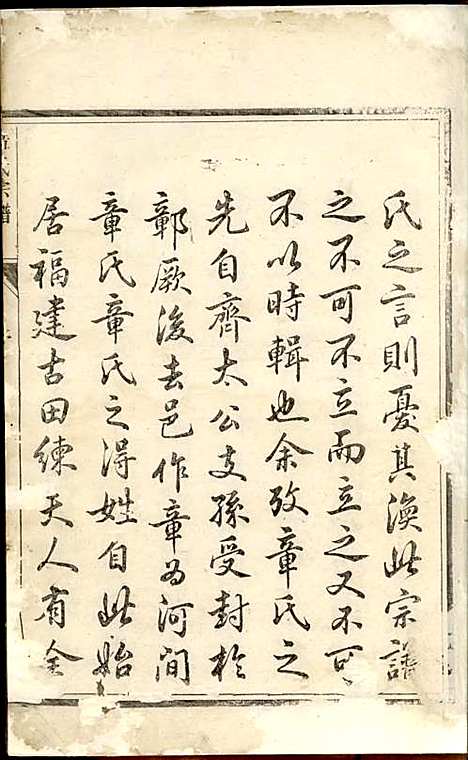 氏之言則憂其渙此宗譜
之不可不立而立之又不可
不以時輯也余攷章氏之
先自齊太公支孫受封於
鄣厥後去邑作章為河間
章氏章氏之得姓自此始
居福建古田練夫人有全
氏宗譜